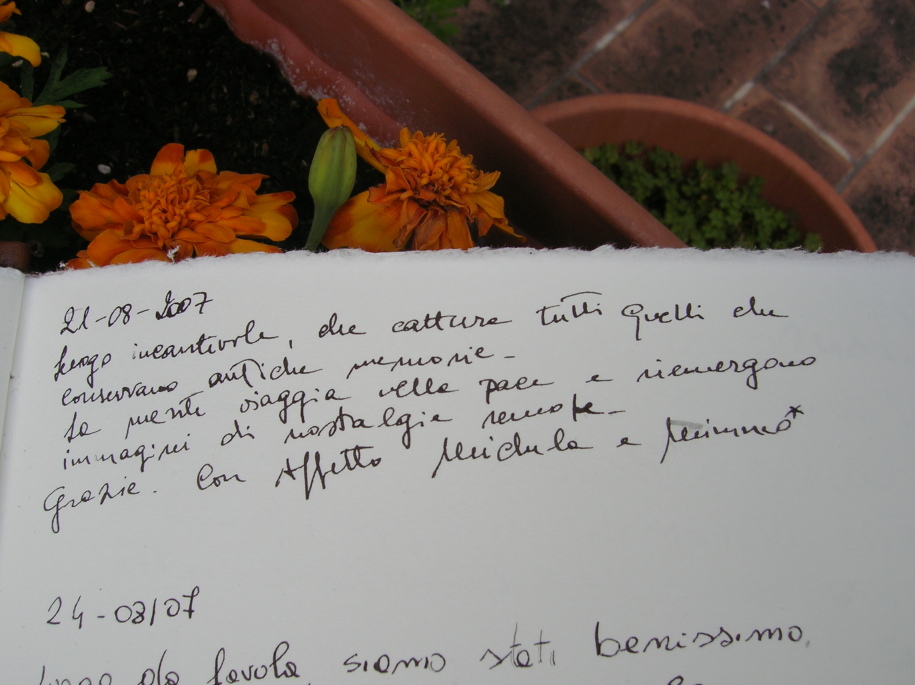 21-08-2007
luogo incantevole, che cattura tutti quelli che
conservano antiche memorie -
La mente viaggia nella pace e riemergono
immagini di nostalgie remote -
Grazie. Con Affetto Michela e Mimmo*
24-08/07
Luogo da favola, siamo stati benissimo,